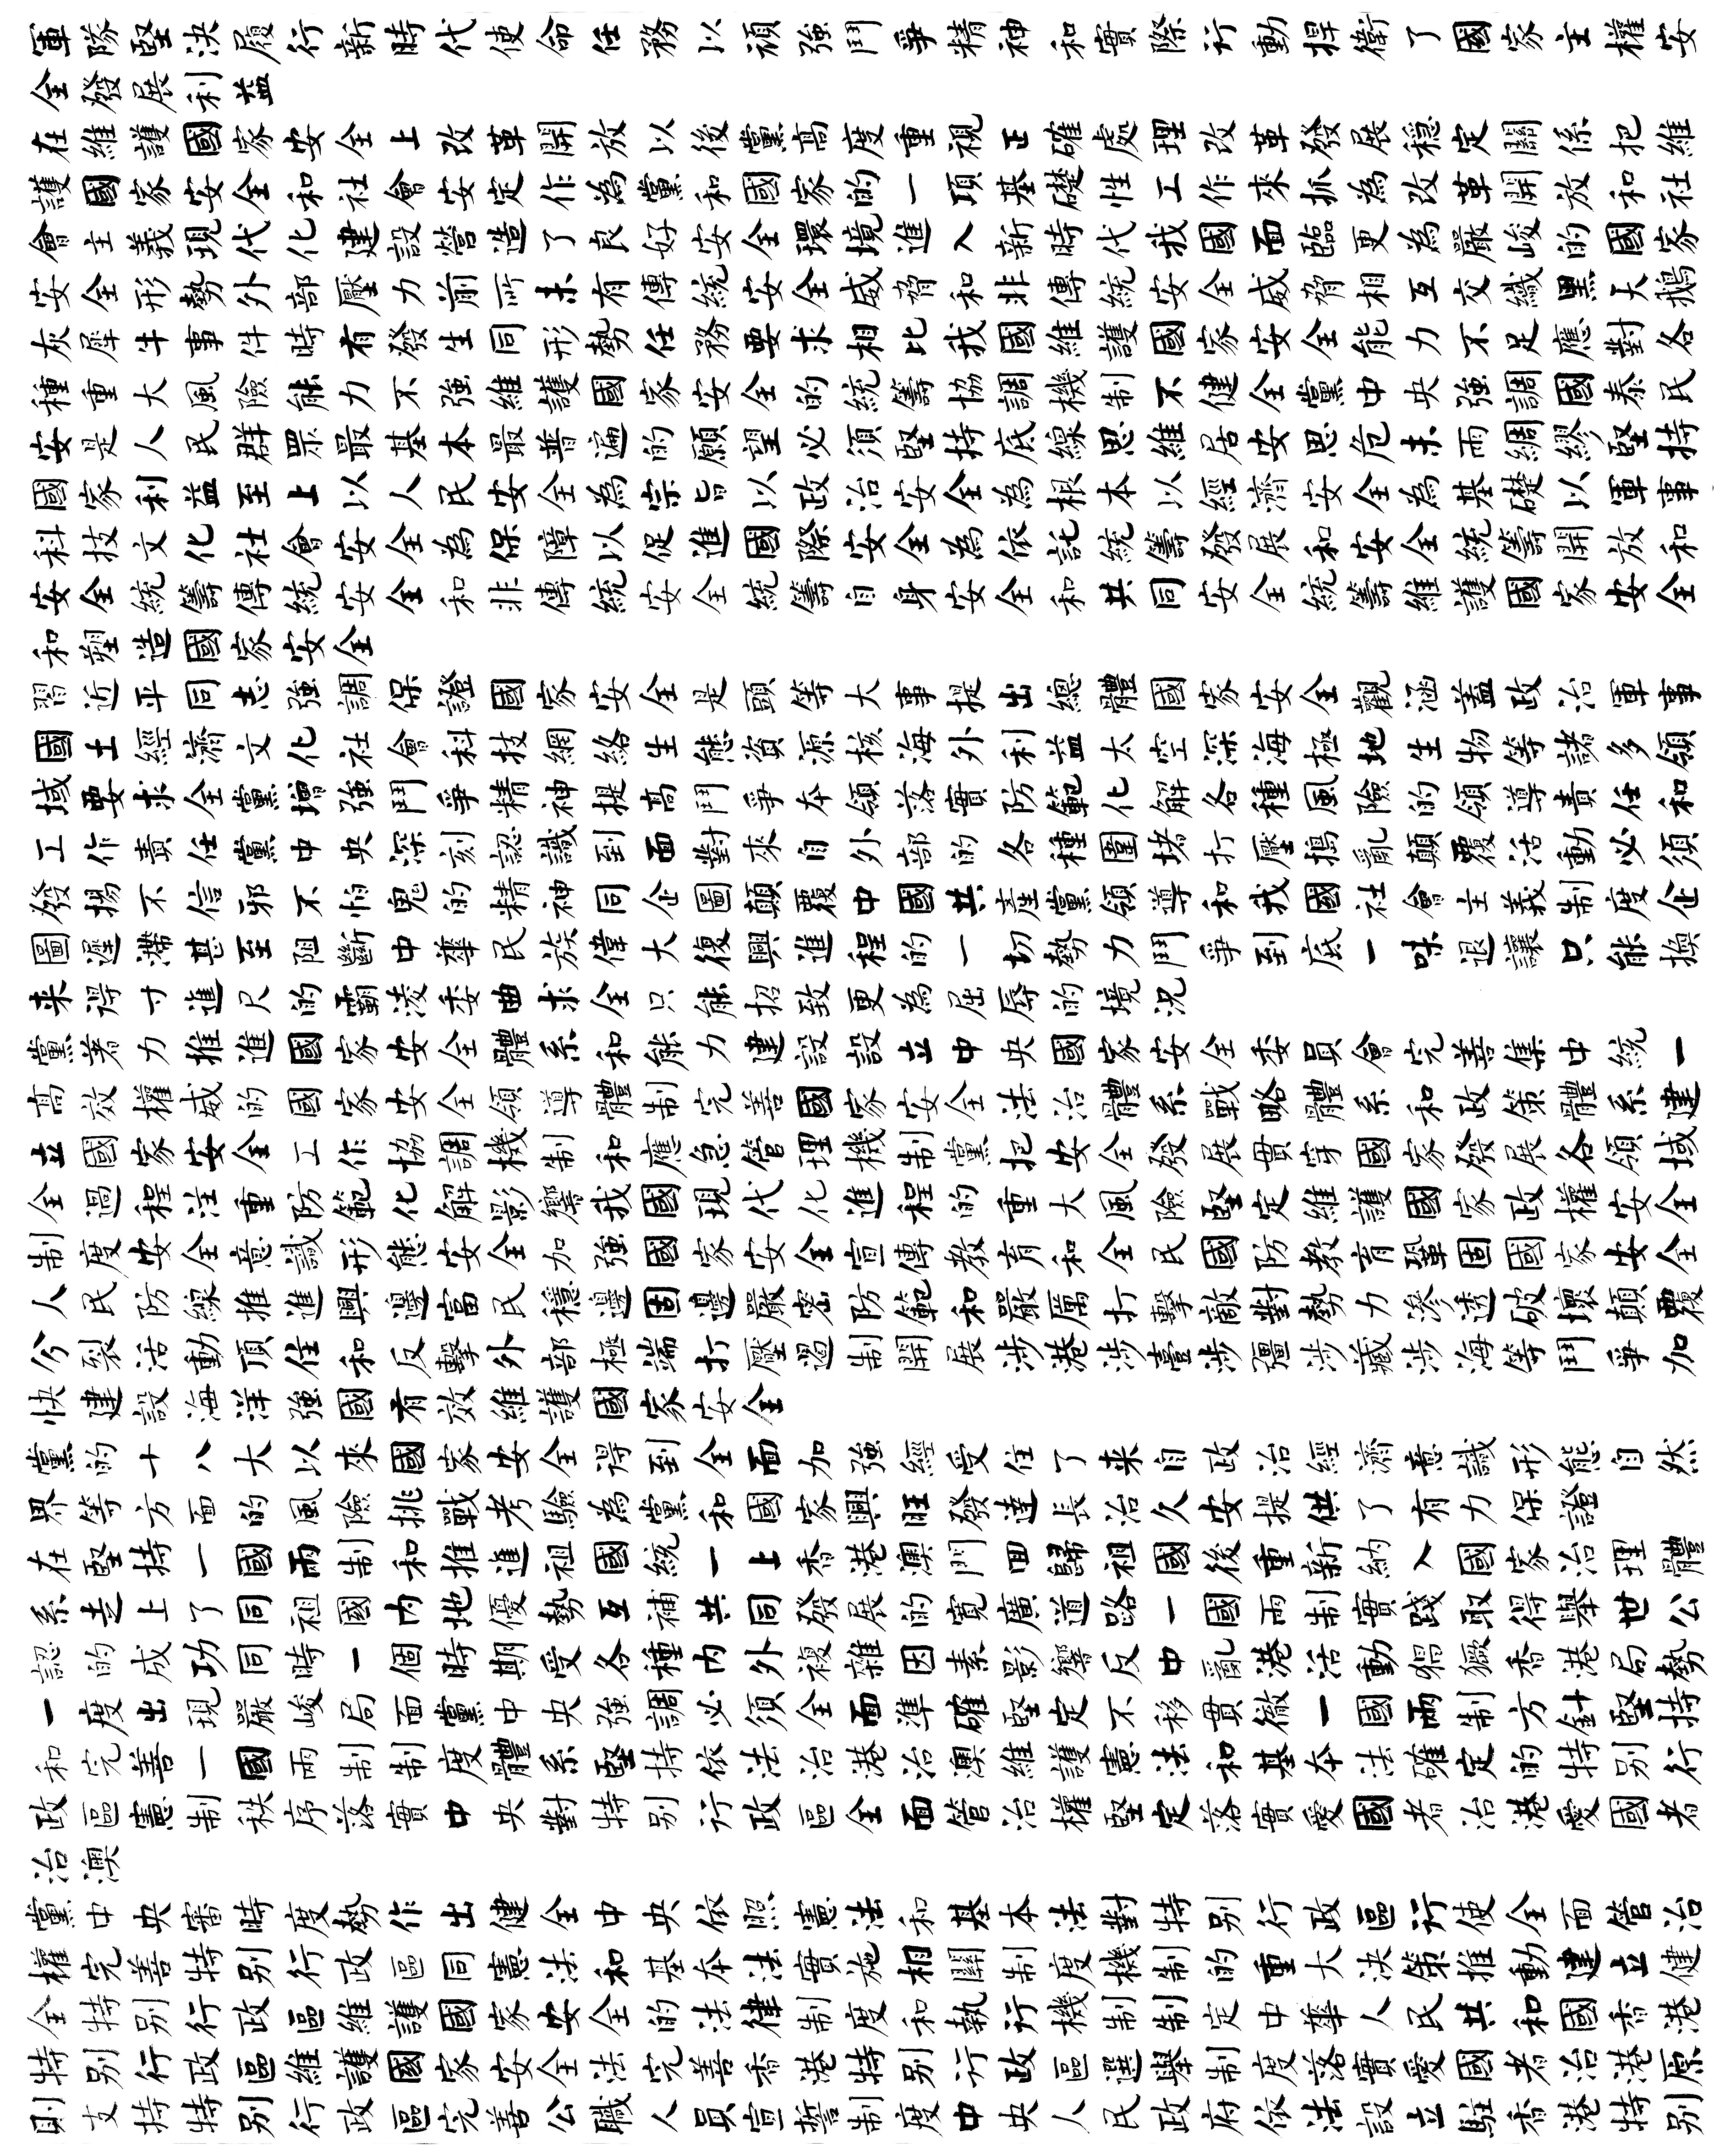 軍隊堅決履行新時代使命任務以頑強鬥爭精神和實際行動捍衛了國家主權安
全發展利益
在維護國家安全上改革開放以後黨高度重視正確處理改革發展穩定關係把維
護國家安全和社會安定作為黨和國家的一項基礎性工作來抓為改革開放和社
會主義現代化建設營造了良好安全環境進入新時代我國面臨更為嚴峻的國家
安全形勢外部壓力前所未有傳統安全威脅和非傳統安全威脅相互交織黑天鵝
灰犀牛事件時有發生同形勢任務要求相比我國維護國家安全能力不足應對各
種重大風險能力不強維護國家安全的統籌協調機制不健全黨中央強調國泰民
安是人民群眾最基本最普遍的願望必須堅持底線思維居安思危未雨綢繆堅持
國家利益至上以人民安全為宗旨以政治安全為根本以經濟安全為基礎以軍事
科技文化社會安全為保障以促進國際安全為依託統籌發展和安全統籌開放和
安全統籌傳統安全和非傳統安全統籌自身安全和共同安全統籌維護國家安全
和塑造國家安全
習近平同志強調保證國家安全是頭等大事提出總體國家安全觀涵蓋政治軍事
國土經濟文化社會科技網絡生態資源核海外利益太空深海極地生物等諸多領
域要求全黨增強鬥爭精神提高鬥爭本領落實防範化解各種風險的領導責任和
工作責任黨中央深刻認識到面對來自外部的各種圍堵打壓搗亂顛覆活動必須
發揚不信邪不怕鬼的精神同企圖顛覆中國共產黨領導和我國社會主義制度企
圖遲滯甚至阻斷中華民族偉大復興進程的一切勢力鬥爭到底一味退讓只能換
來得寸進尺的霸淩委曲求全只能招致更為屈辱的境況
黨著力推進國家安全體系和能力建設設立中央國家安全委員會完善集中統一
高效權威的國家安全領導體制完善國家安全法治體系戰略體系和政策體系建
立國家安全工作協調機制和應急管理機制黨把安全發展貫穿國家發展各領域
全過程注重防範化解影響我國現代化進程的重大風險堅定維護國家政權安全
制度安全意識形態安全加強國家安全宣傳教育和全民國防教育鞏固國家安全
人民防線推進興邊富民穩邊固邊嚴密防範和嚴厲打擊敵對勢力滲透破壞顛覆
分裂活動頂住和反擊外部極端打壓遏制開展涉港涉臺涉疆涉藏涉海等鬥爭加
快建設海洋強國有效維護國家安全
黨的十八大以來國家安全得到全面加強經受住了來自政治經濟意識形態自然
界等方面的風險挑戰考驗為黨和國家興旺發達長治久安提供了有力保證
在堅持一國兩制和推進祖國統一上香港澳門回歸祖國後重新納入國家治理體
系走上了同祖國內地優勢互補共同發展的寬廣道路一國兩制實踐取得舉世公
認的成功同時一個時期受各種內外複雜因素影響反中亂港活動猖獗香港局勢
一度出現嚴峻局面黨中央強調必須全面準確堅定不移貫徹一國兩制方針堅持
和完善一國兩制制度體系堅持依法治港治澳維護憲法和基本法確定的特別行
政區憲制秩序落實中央對特別行政區全面管治權堅定落實愛國者治港愛國者
治澳
黨中央審時度勢作出健全中央依照憲法和基本法對特別行政區行使全面管治
權完善特別行政區同憲法和基本法實施相關制度機制的重大決策推動建立健
全特別行政區維護國家安全的法律制度和執行機制制定中華人民共和國香港
特別行政區維護國家安全法完善香港特別行政區選舉制度落實愛國者治港原
則支持特別行政區完善公職人員宣誓制度中央人民政府依法設立駐香港特別